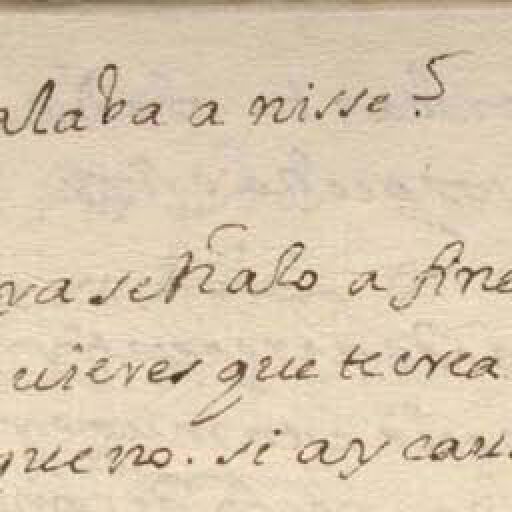 alaba a nisse?
va señalo a fine
uieres que te crea
que no. si ay cau